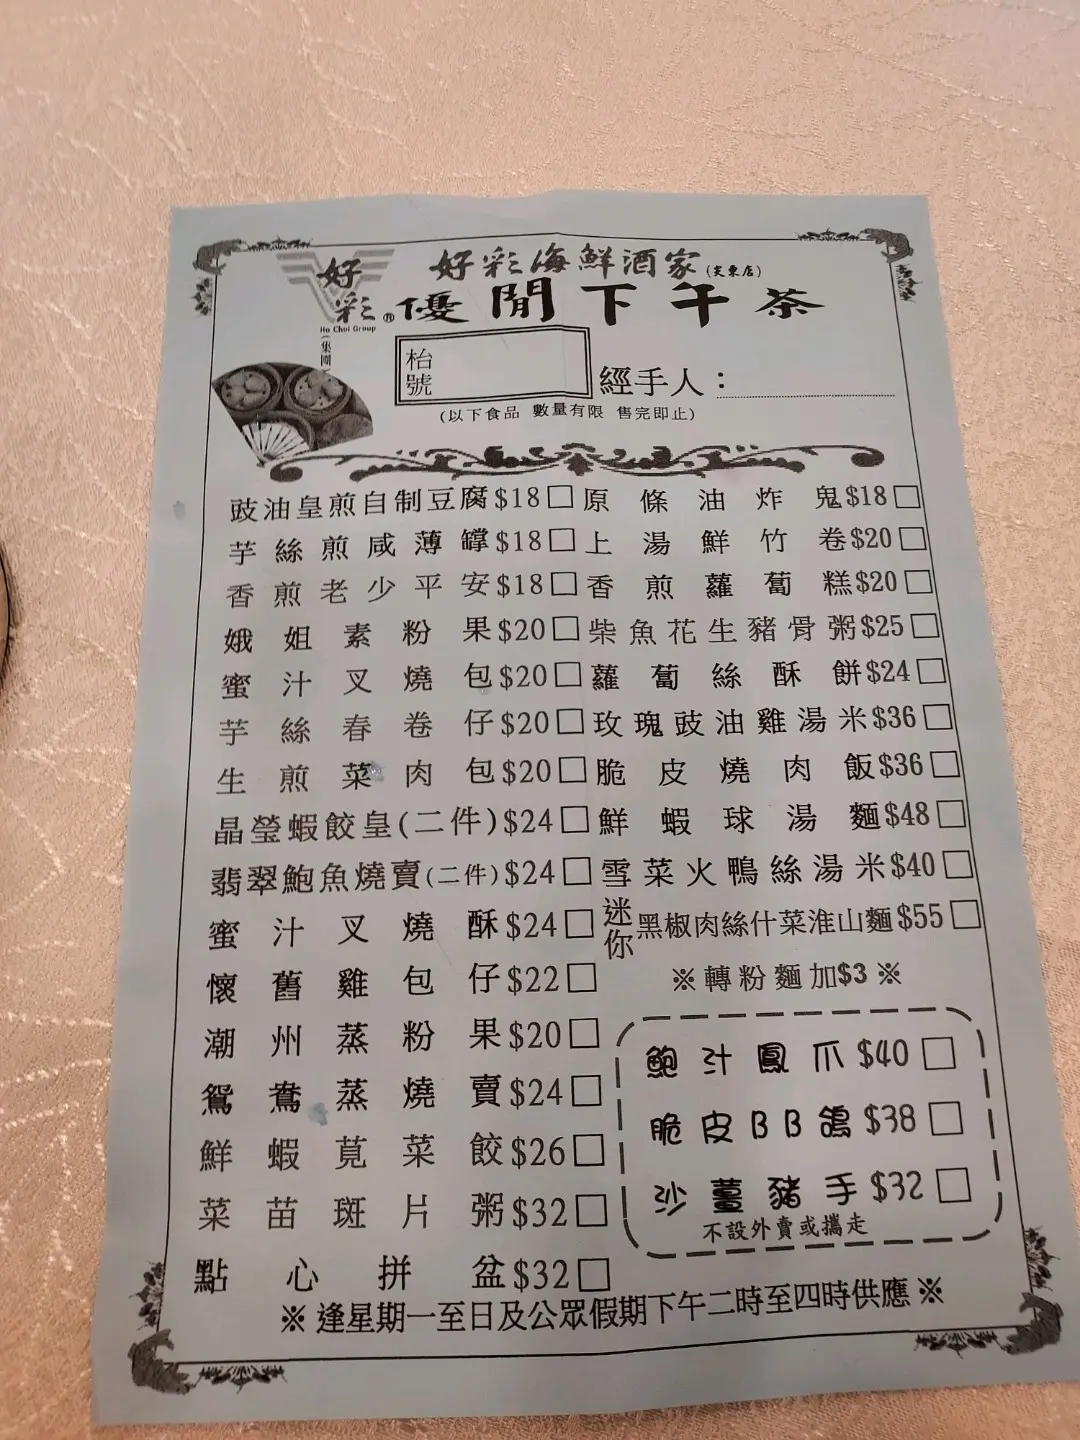 好彩海鮮酒家(芙東店)
好彩®
Ho Choi Group
(集團)
優閒下午茶
枱號
經手人：
(以下食品 數量有限 售完即止)
豉油皇煎自制豆腐$18□
原條油炸鬼$18□
芋絲煎咸薄罉$18□
上湯鮮竹卷$20□
香煎老少平安$18□
香煎蘿蔔糕$20□
娥姐素粉果$20□
柴魚花生豬骨粥$25□
蜜汁叉燒包$20□
蘿蔔絲酥餅$24□
芋絲春卷仔$20□
玫瑰豉油雞湯米$36□
生煎菜肉包$20□
脆皮燒肉飯$36□
晶瑩蝦餃皇(二件)$24□
鮮蝦球湯麵$48□
翡翠鮑魚燒賣(二件)$24□
雪菜火鴨絲湯米$40□
蜜汁叉燒酥$24□
迷你黑椒肉絲什菜淮山麵$55□
懷舊雞包仔$22□
※轉粉麵加$3※
潮州蒸粉果$20□
鴛鴦蒸燒賣$24□
鮮蝦莧菜餃$26□
菜苗斑片粥$32□
點心拼盆$32□
鮑汁鳳爪$40□
脆皮BB鴿$38□
沙薑豬手$32□
不設外賣或攜走
※逢星期一至日及公眾假期下午二時至四時供應※